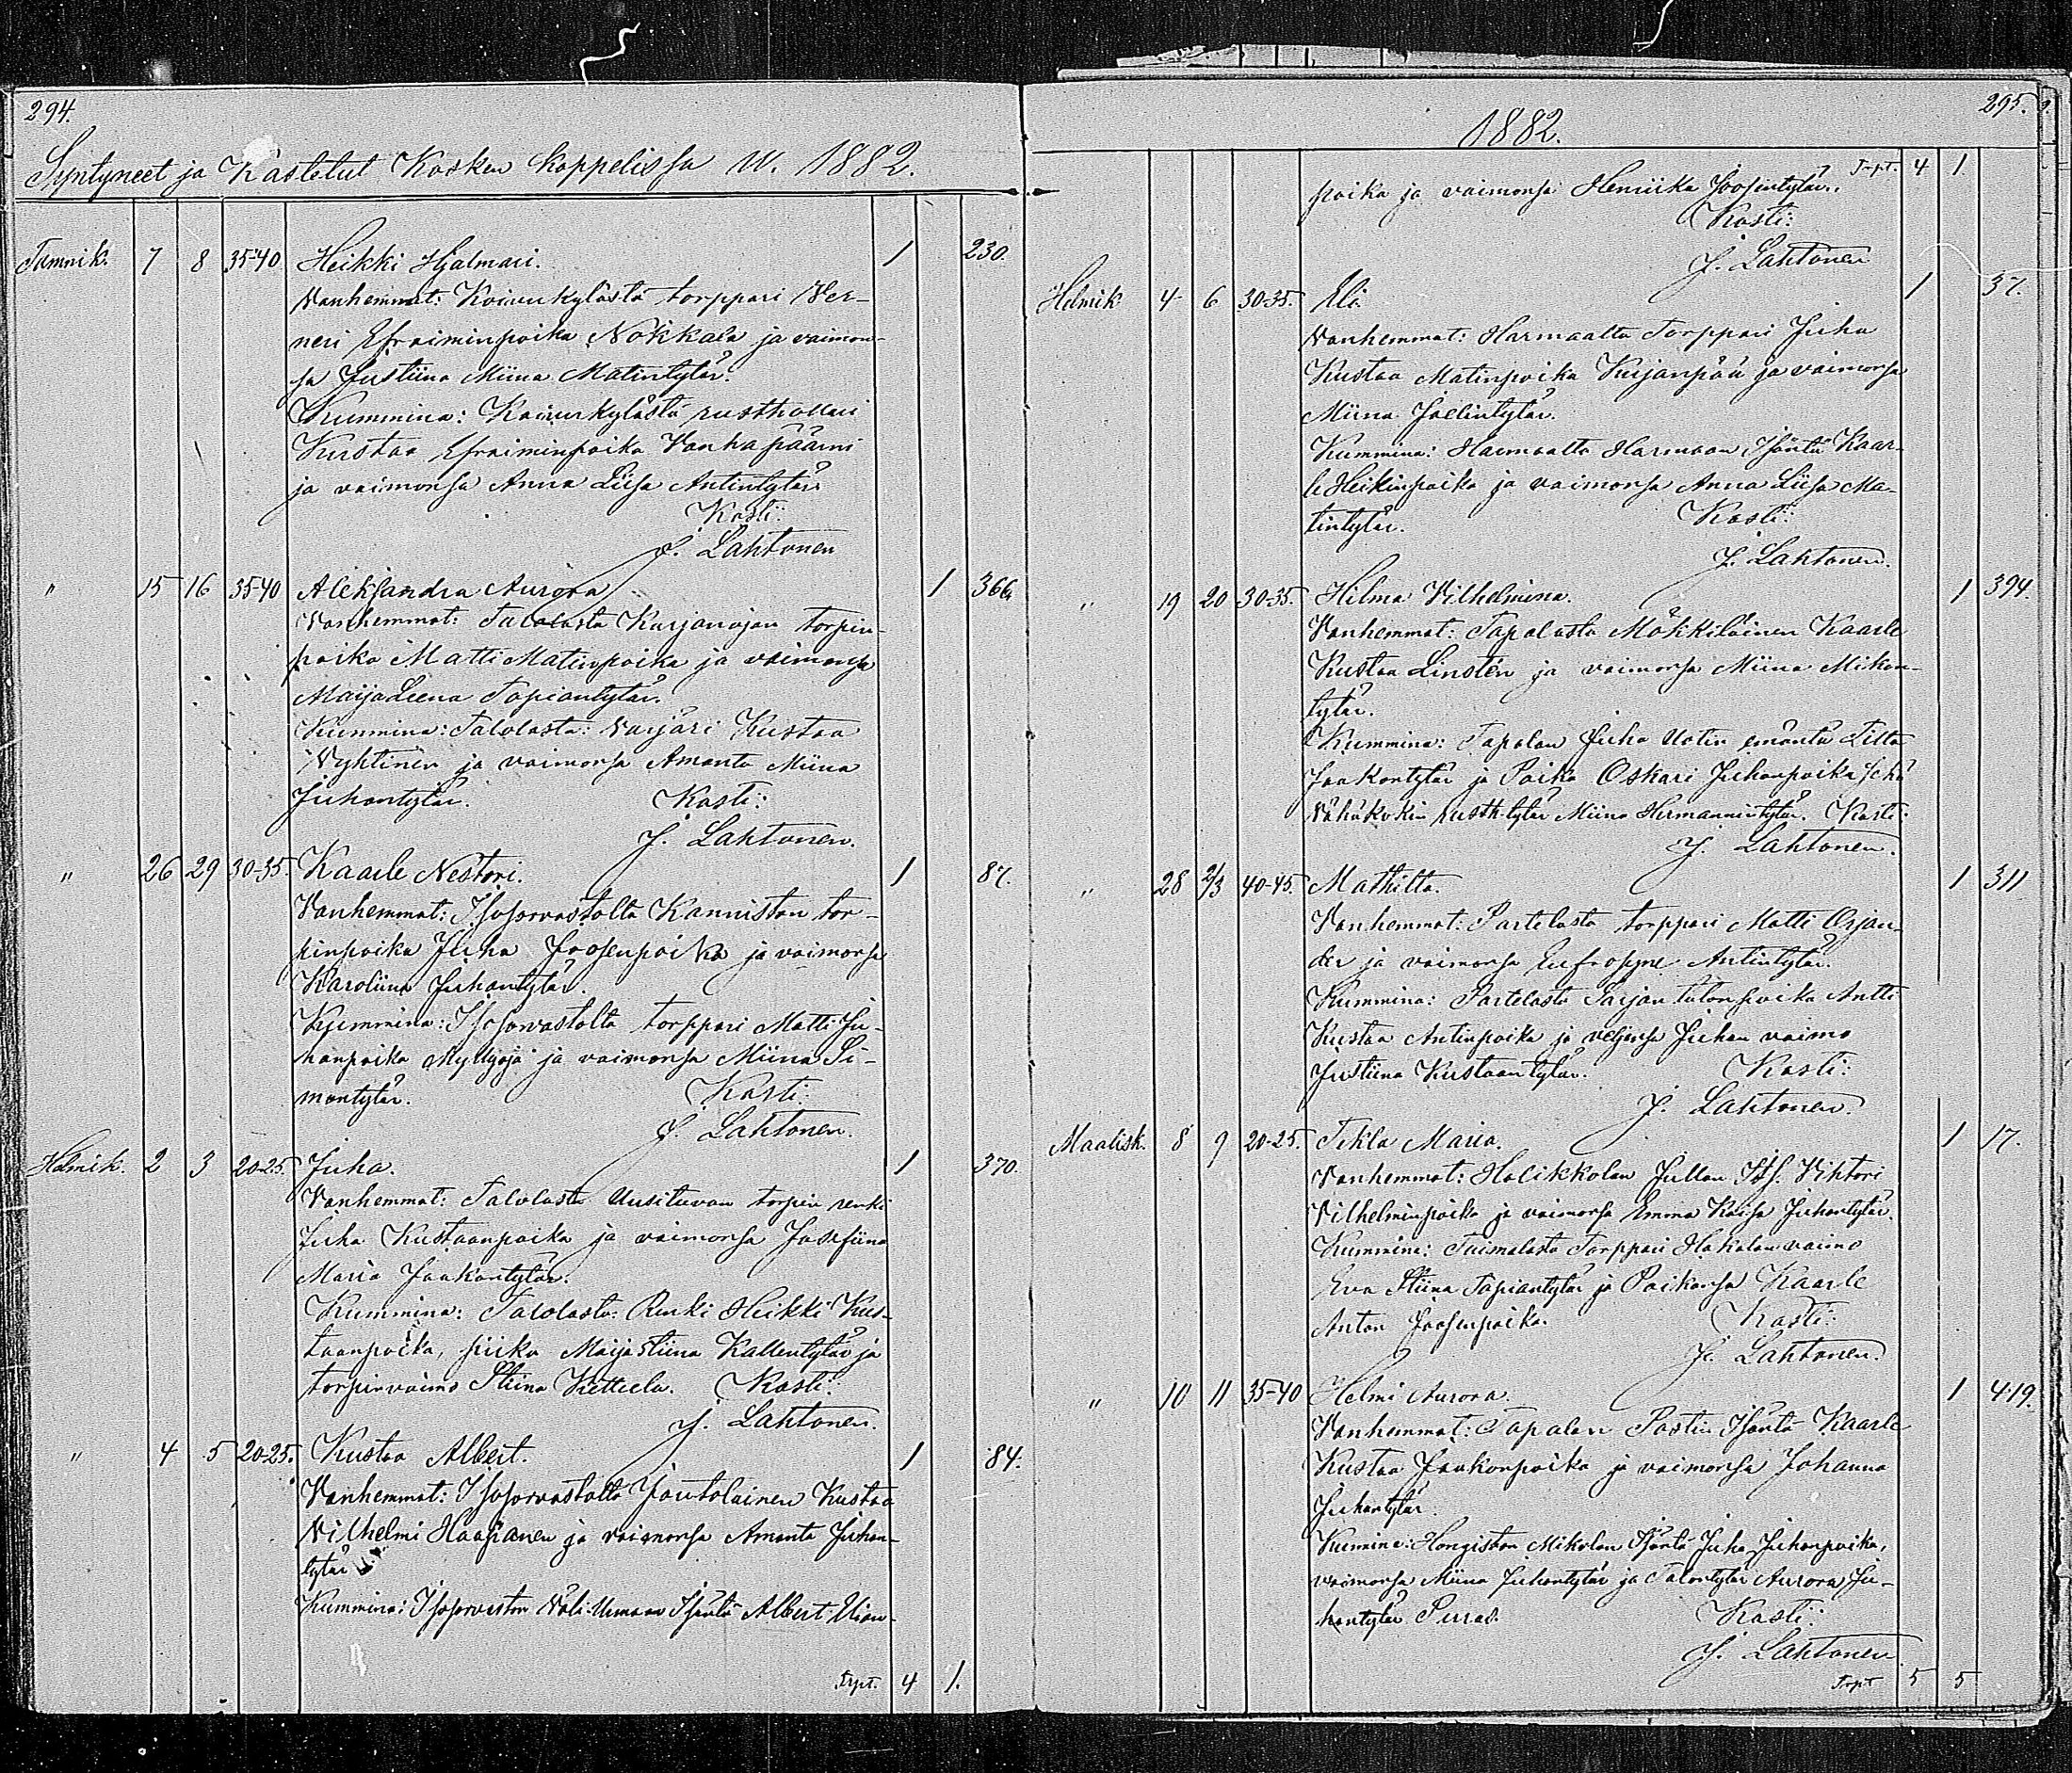 294.
Syntyneet ja Kastetut Kosken kappelissa w. 1882.
Tamnik. 7 8 35-40 Heikki Hjalmari. 1 230.
Vanhemmat: Koivukylästä torppari Ver-
neri Efraiminpoika Nokkala ja vaimon-
sa Justiina Miina Matintytär.
Kummina: Koivukylästä rusthollari
Kustaa Efraiminpoika Vanhapäärni
ja vaimonsa Anna Liisa Antintytär.
Kasti:
J. Lahtonen
" 15 16 35-40 Aleksandra Aurora 1 366
Vanhemmat: Talolasta Karjanojan torpin-
poika Matti Matinpoika ja vaimonsa
Maija Leena Tapiantytär.
Kummina: Talolasta: Varjäri Kustaa
Vyhtinen ja vaimonsa Amanta Miina
Juhantytär. Kasti:
J. Lahtonen.
" 26 29 30-35. Kaarle Nestori. 1 87.
Vanhemmat: Isosorvastolta Kanniston tor-
pinpoika Juha Joosenpoika ja vaimonsa
Karoliina Juhantytär.
Kummina: Isosorvastolta torppari Matti Ju-
hanpoika Myllyoja ja vaimonsa Miina Si-
montytär. Kasti:
J. Lahtonen.
Helmik. 2 3 20-25. Juha. 1 370.
Vanhemmat: Talolasta Uusituvan torpin renki
Juha Kustaanpoika ja vaimonsa Josefiina
Maria Jaakontytär.
Kummina: Talolasta: Renki Heikki Kus-
taanpoika, piika Maijastiina Kallentytär ja
torpinvaimo Stiina Ketteela. Kasti:
J. Lahtonen.
" 4 5 20-25. Kustaa Albert. 1 84.
Vanhemmat: Isosorvastolta Joutolainen Kustaa
Vilhelmi Haapanen ja vaimonsa Amanta Juhan-
tytär
Kummina: Isosorvaston Väli-Uuman Isäntä Albert Uian-
Trpt. 4 1.
295.
1882.
Trpt. 4 1.
poika ja vaimonsa Henriika Joosintytär.
Kasti:
J. Lahtonen
Helmik 4 6 30-35. Eli. 1 37.
Vanhemmat: Harmaalta Torppari Juha
Kustaa Matinpoika Kurjanpää ja vaimonsa
Miina Joelintytär.
Kummina: Harmaalta Harmaan Isäntä Kaar-
le Heikinpoika ja vaimonsa Anna Liisa Ma-
tintytär. Kasti:
J. Lahtonen.
" 19 20 30-35. Hilma Vilhelmina. 1 394.
Vanhemmat: Tapalasta Mökkiläinen Kaarle
Kustaa Linstén ja vaimonsa Miina Mikon-
tytär.
Kummina: Tapalan Juha Uotin emäntä Titta
Jaakontytär ja Poika Oskari Juhanpoika sekä
Vähäkokin rusth. tytär Miina Hermannintytär. Kasti:
J. Lahtonen.
" 28 2/3 40-45. Mathilta. 1 311
Vanhemmat: Partelasta torppari Matti Orjan-
der ja vaimonsa Eufrosyne Antintytär.
Kummina: Partelasta Parjan talonpoika Antti
Kustaa Antinpoika ja veljensä Juhan vaimo
Justiina Kustaantytär. Kasti:
J. Lahtonen.
Maalisk. 8 9 20-25. Tekla Maria. 1 17.
Vanhemmat: Halikkolan Jullan Its. Viktori
Vilhelminpoika ja vaimonsa Emma Kaisa Juhantytär.
Kummina: Tuimalasta Torppari Hakalan vaimo
Eva Stiina Tapiantytär ja Poikansa Kaarle
Anton Joosenpoika. Kasti:
J. Lahtonen.
" 10 11 35-40 Helmi Aurora. 1 419.
Vanhemmat: Tapalan Pastin Isäntä Kaarle
Kustaa Jaakonpoika ja vaimonsa Johanna
Juhantytär.
Kummina: Hongiston Mikolan Isäntä Juha Juhanpoika,
vaimonsa Miina Juhantytär ja Talontytär Aurora Ju-
hantytär Puras. Kasti:
J. Lahtonen.
Trpt 5 5